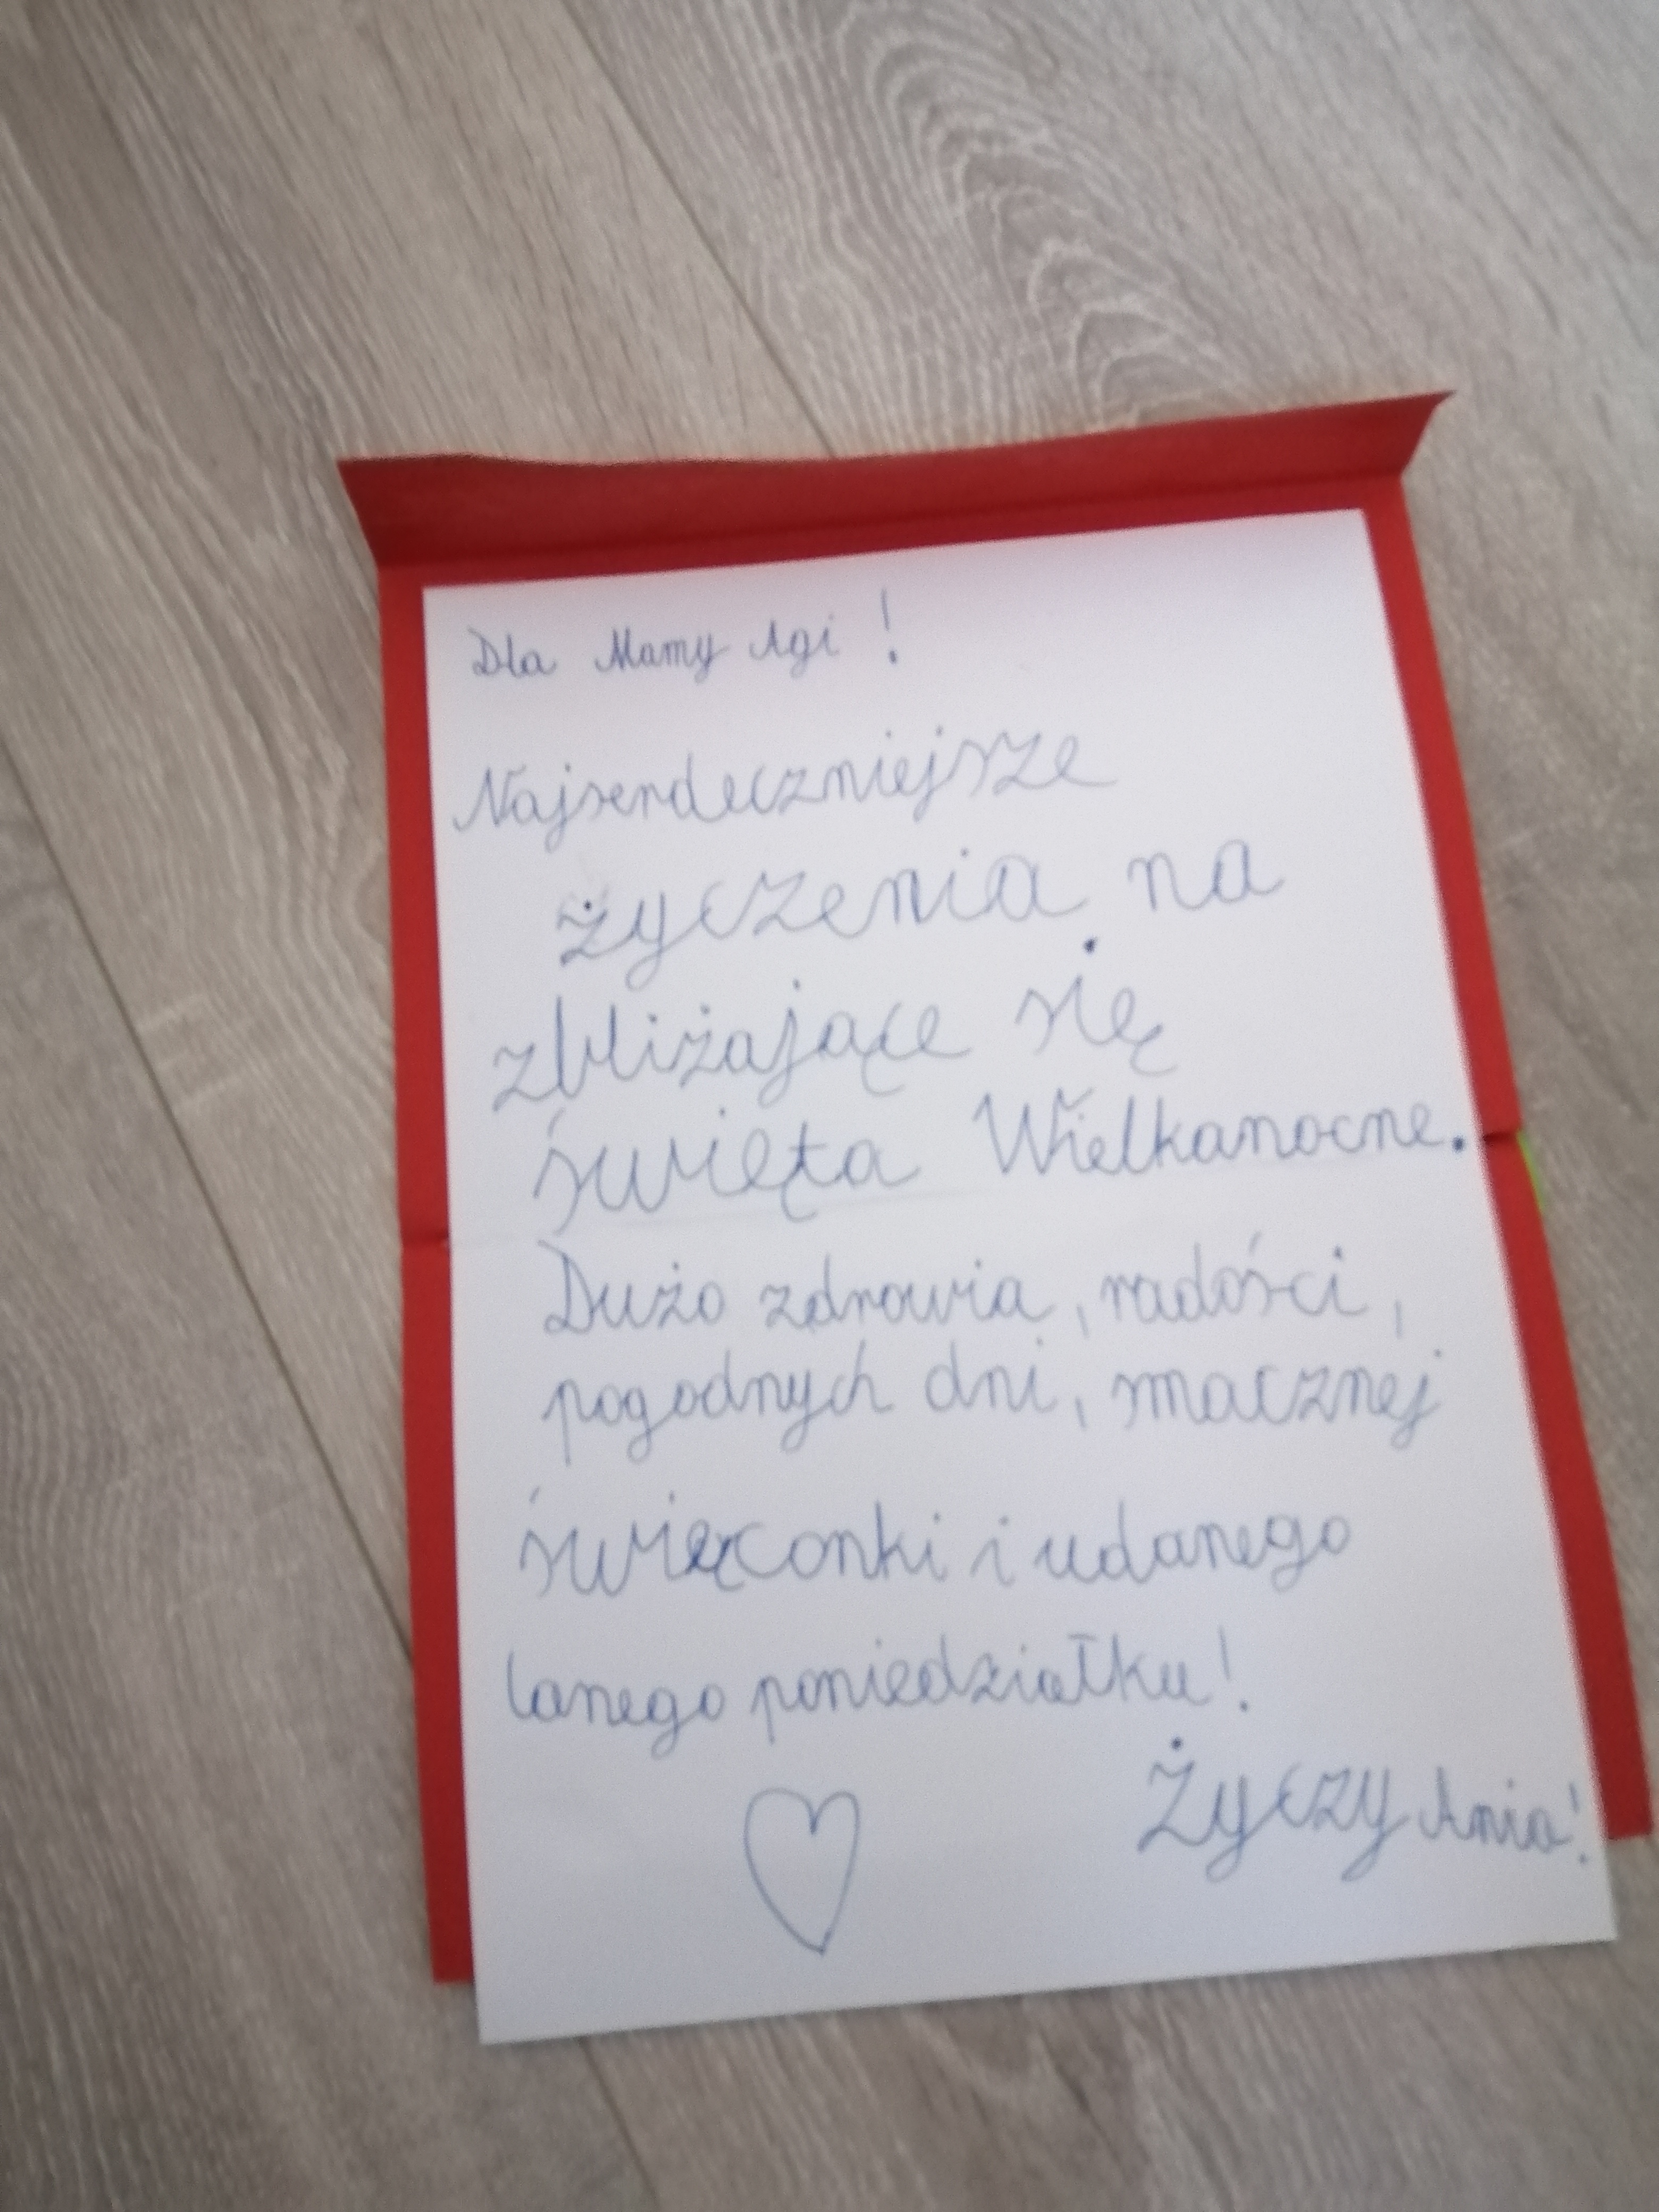 Dla Mamy Agi !
Najserdeczniejsze
życzenia na
zbliżające się
święta Wielkanocne.
Dużo zdrowia, radości,
pogodnych dni, smacznej
święconki i udanego
lanego poniedziałku!
Życzy Ania!